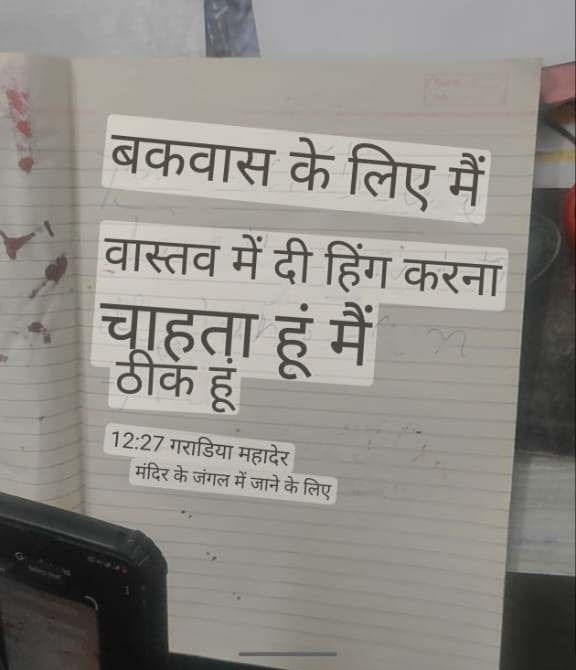 बकवास के लिए मैं
वास्तव में दी हिंग करना
चाहता हूं मैं
ठीक हूं
12:27 गराडिया महादेर
मंदिर के जंगल में जाने के लिए